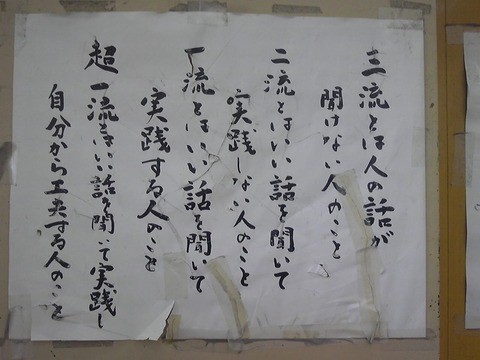 三流とは人の話が
聞けない人のこと
二流とはいい話を聞いて
実践しない人のこと
一流とはいい話を聞いて
実践する人のこと
超一流とはいい話を聞いて実践し
自分から工夫する人のこと